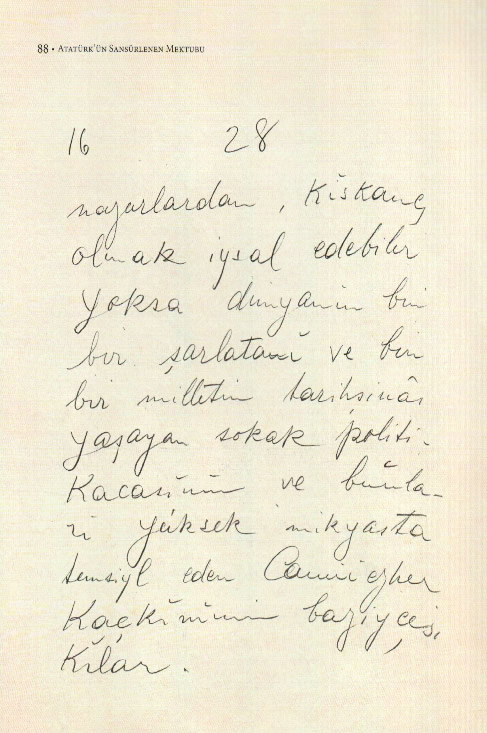 88 • ATATÜRK'ÜN SANSÜRLENEN MEKTUBU
16 28
nazarlardan, Kiskanç
olmak iysal edebilir
Yoksa dünyanin bin
bir şarlatani ve bin
bir milletin tarihşinâs
yaşayan sokak politi-
Kacasinin ve bunla-
ri yüksek mikyasta
temsiyl eden Camiiezher
Kaçkininin baziyçesi
Kilar.